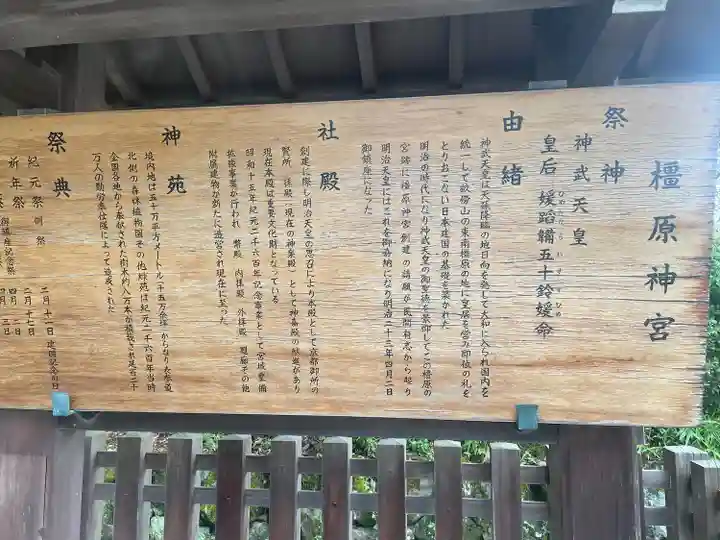 橿原神宮
祭神
神武天皇
皇后 媛蹈鞴五十鈴媛命
ひめたたらいすずひめ
由緒
神武天皇は天孫降臨の地日向を発して大和に入られ国内を
統一して畝傍山の東南橿原の地に皇居を営み即位の礼を
とりおこない日本建国の基礎を築かれた
明治の時代になり神武天皇の御聖徳を景仰してこの橿原の
宮跡に橿原神宮創建の請願が民間有志から起り
明治天皇にはこれを御嘉納になり明治二十三年四月二日
御鎮座になった
社殿
創建に際し明治天皇の思召により本殿として京都御所の
賢所 拝殿(現在の神楽殿)として神嘉殿の下賜があり
現在本殿は重要文化財となっている
昭和十五年紀元二千六百年記念事業として宮域整備
拡張事業が行われ 幣殿 内拝殿 外拝殿 廻廊その他
附属建物が新たに造営され現在に至った
神苑
境内地は五十万平方メートル(十五万余坪)からなり表参道
北側の森林植物園その他綜苑は紀元二千六百年当時
全国各地から奉献された樹木約八万本が植栽され延百二十
万人の勤労奉仕隊によって造成された
祭典
紀元祭 例祭 二月十一日 建国記念の日
祈年祭 二月十七日
御鎮座記念祭 四月二日
四月三日